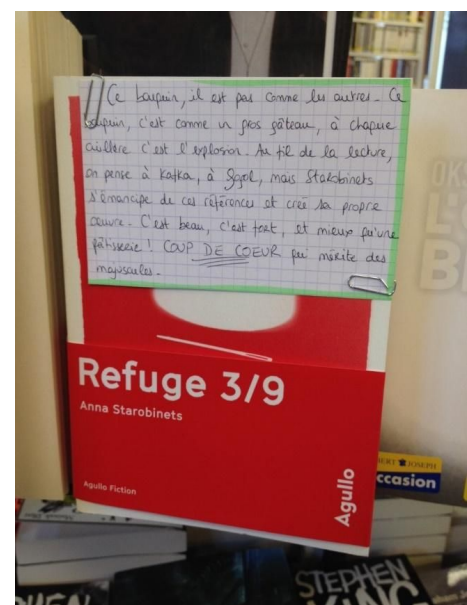 Ce bouquin, il est pas comme les autres. Ce
bouquin, c'est comme un gros gâteau, à chaque
cuillère c'est l'explosion. Au fil de la lecture,
on pense à Kafka, à Gogol, mais Starobinets
s'émancipe de ces références et crée sa propre
œuvre. C'est beau, c'est fort, et mieux qu'une
pâtisserie ! COUP DE COEUR qui mérite des
majuscules.
Refuge 3/9
Anna Starobinets
Agullo Fiction
Agullo
JOSEPH
ccasion
STEPHEN
KING